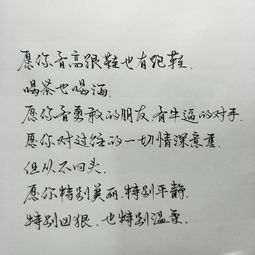 愿你有高跟鞋也有跑鞋.
喝茶也喝酒.
愿你有勇敢的朋友,有牛逼的对手.
愿你对过往的一切情深意重.
但从不回头.
愿你特别美丽.特别平静.
特别凶狠.也特别温柔.